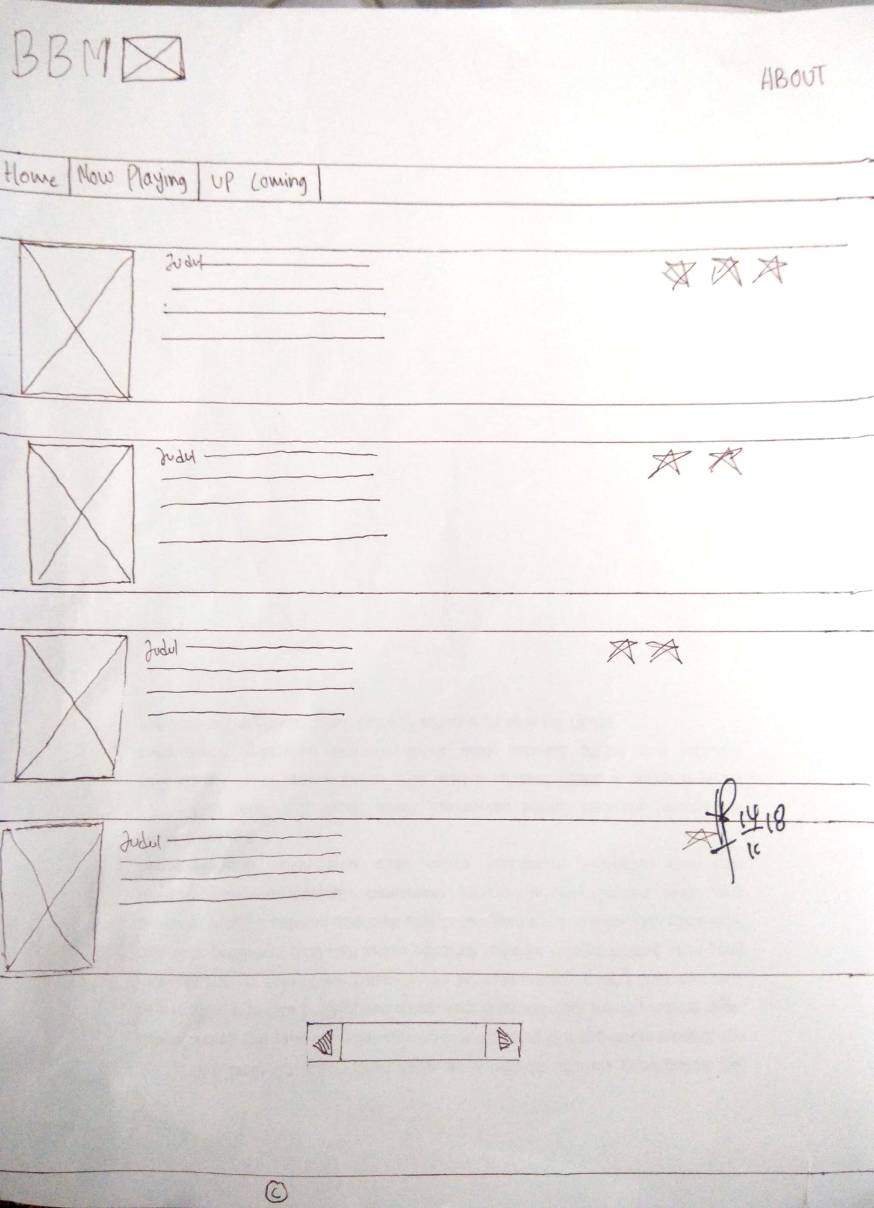 BBM
ABOUT
Home Now Playing UP Coming
Judul
Judul
Judul
Judul
14 18
©